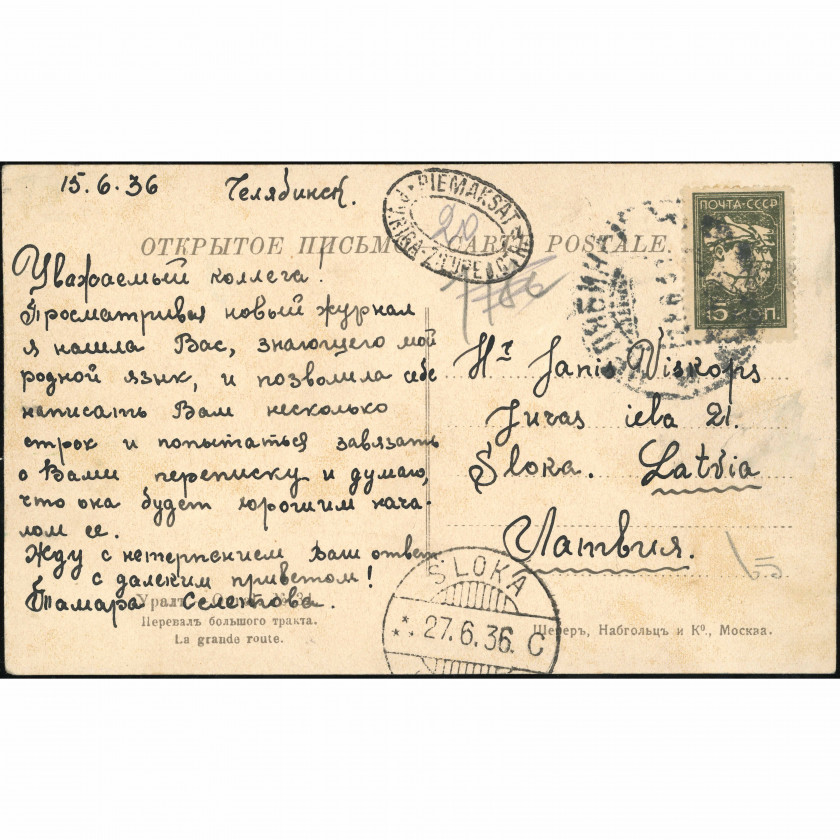 15.6.36 Челябинск.
PIEMAKSAT
20
ОТКРЫТОЕ ПИСЬМО CARTE POSTALE.
ПОЧТА-СССР
15 КОП.
Уважаемый коллега!
Просматривая новый журнал
я нашла Вас, знающего мой
родной язык, и позволила себе
написать Вам несколько
строк и попытаться завязать
с Вами переписку и думаю,
что она будет хорошим нача-
лом ее.
Жду с нетерпением Ваш ответ
с далеким приветом!
Тамара
Hr Janis Viskops
Juras iela 21.
Šloka. Latvia
Латвия.
Уралъ
Перевалъ большого тракта.
La grande route.
SLOKA
27.6.36. C
Шереръ, Набгольцъ и Ко., Москва.